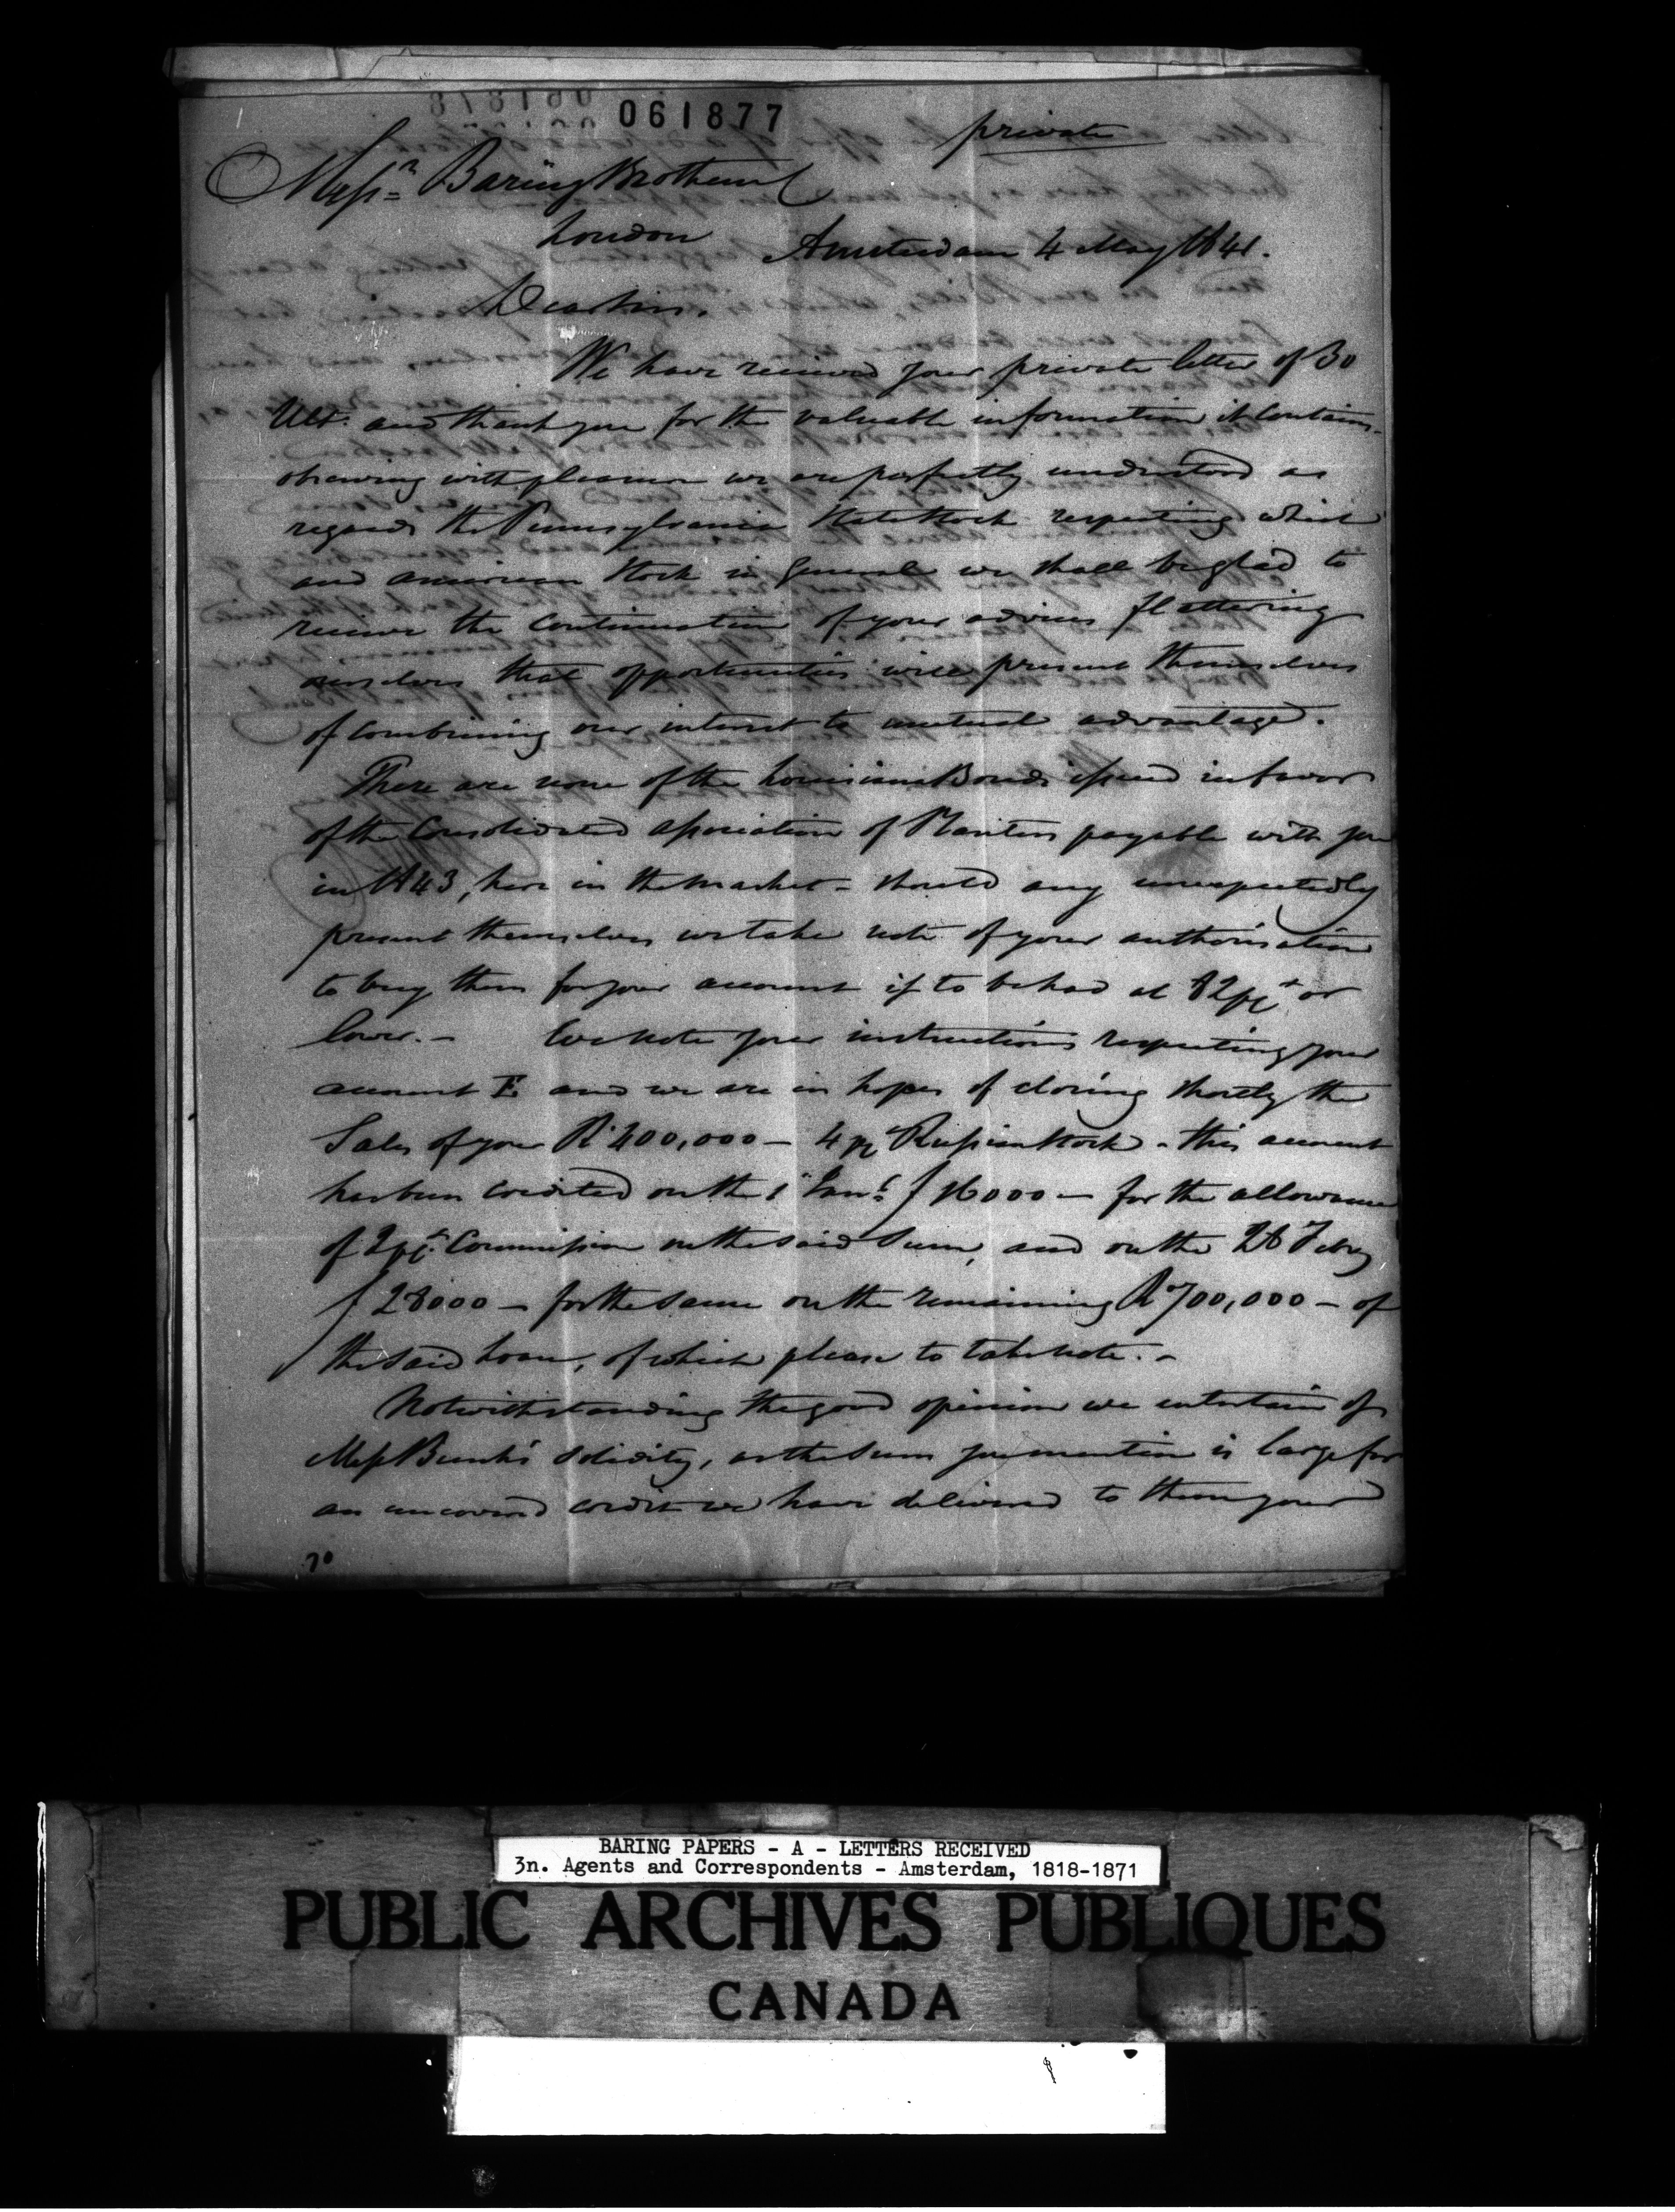 061877
private
Messrs Baring Brothers
London
Amsterdam 4 May 1841.
Dear Sirs.
We have received your private letter of 30
Ult. and thank you for the valuable information it contains
observing with pleasure we are perfectly understood as
regards the Pennsylvania State Stock respecting which
and American Stock in general we shall be glad to
receive the continuation of your advices flattering
ourselves that opportunities will present themselves
of combining our interest to mutual advantage.
There are none of the Louisiana Bonds issued in favor
of the Consolidated association of Planters payable with you
in 1843, here in the market - should any unexpectedly
present themselves we take note of your authorisation
to buy them for your account if to be had at 82 pct or
lower. - We note your instructions respecting your
account E and we are in hopes of closing shortly the
Sales of your R 400,000 - 4 pc Russian Stock - this account
has been credited on the 1 Jany f 16000 - for the allowance
of 2 pct Commission on the said Sum, and on the 28 Febry
f 28000 - for the same on the remaining R 700,000 - of
the said Loan, of which please to take note. -
Notwithstanding the good opinion we entertain of
Mess Bunk's solidity, as the sum you mention is large for
an uncovered credit we have delivered to them your
70
BARING PAPERS - A - LETTERS RECEIVED
3n. Agents and Correspondents - Amsterdam, 1818-1871
PUBLIC ARCHIVES PUBLIQUES
CANADA